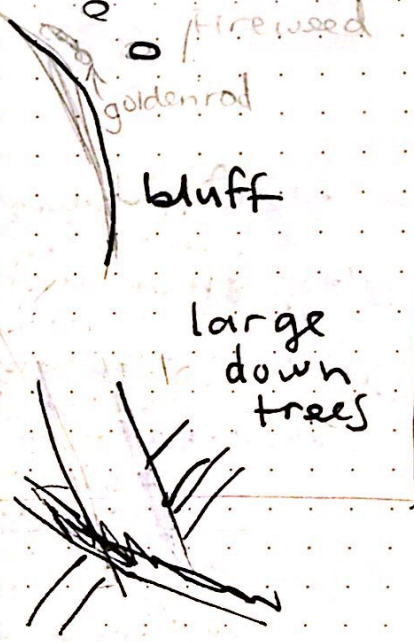 fireweed
goldenrod
bluff
large
down
trees